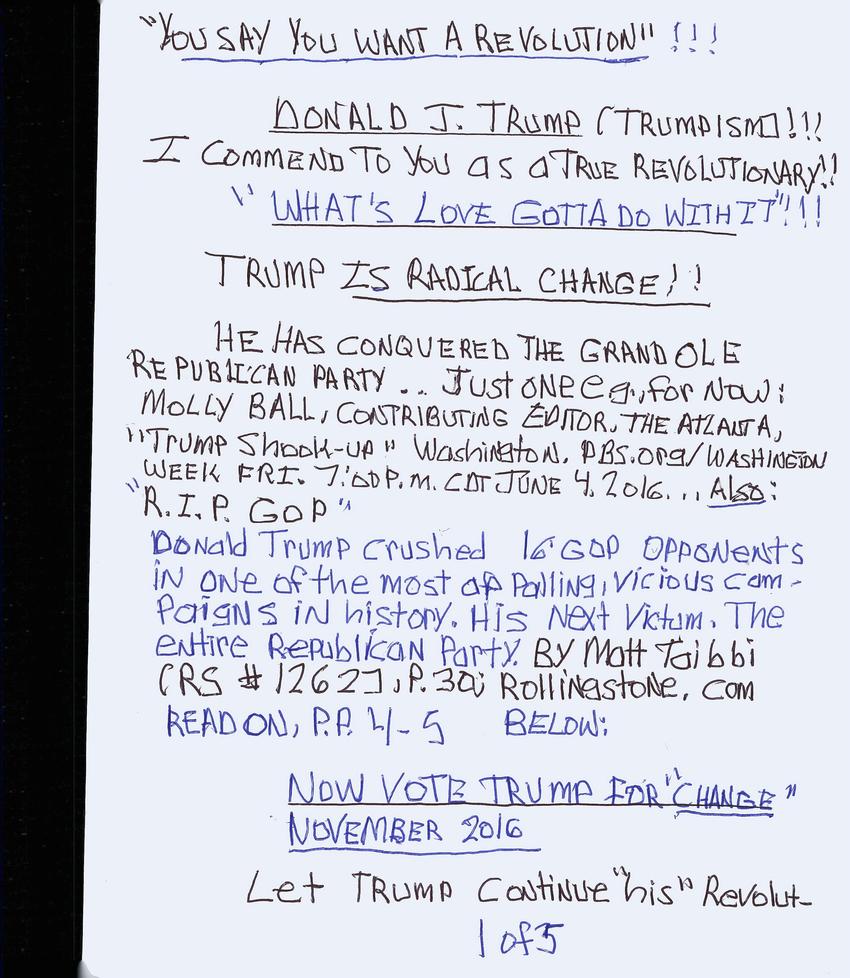 "YOU SAY YOU WANT A REVOLUTION" !!!
DONALD J. TRUMP (TRUMPISM)!!!
I COMMEND TO YOU as a TRUE REVOLUTIONARY!!
"WHAT'S LOVE GOTTA DO WITH IT"!!!
TRUMP IS RADICAL CHANGE!!
HE HAS CONQUERED THE GRAND OLE
REPUBLICAN PARTY ... Just ONE e.g., for Now:
MOLLY BALL, CONTRIBUTING EDITOR, THE ATLANTA,
"Trump Shook-up" Washington. PBS.org/WASHINGTON
WEEK FRI. 7:00 P.M. CDT JUNE 4, 2016... Also:
"R.I.P. GOP"
Donald Trump crushed 16 GOP OPPONENTS
IN ONE of the most appalling, vicious cam-
paigns in history. His Next Victum. The
entire Republican Party. By Matt Taibbi
(RS # 1262), P. 30; RollingStone. com
READ ON, P.P. 4-5 BELOW:
NOW VOTE TRUMP FOR "CHANGE"
NOVEMBER 2016
Let TRUMP Continue "his" Revolut-
1 of 5